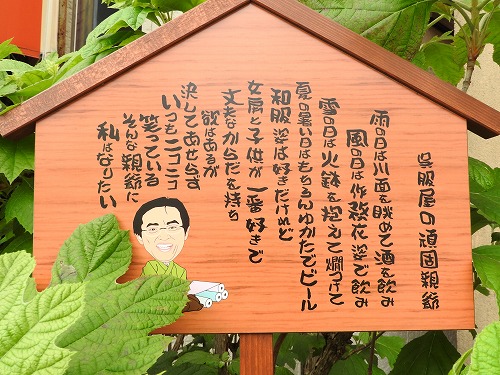 呉服屋の頑固親爺
雨の日は川面を眺めて酒を飲み
風の日は作務衣姿で飲み
雪の日は火鉢を抱えて燗つけて
夏の暑い日はもちろんゆかたでビール
和服姿は好きだけれど
女房と子供が一番好きで
丈夫なからだを持ち
欲はあるが
決してあせらず
いつもニコニコ
笑っている
そんな親爺に
私はなりたい